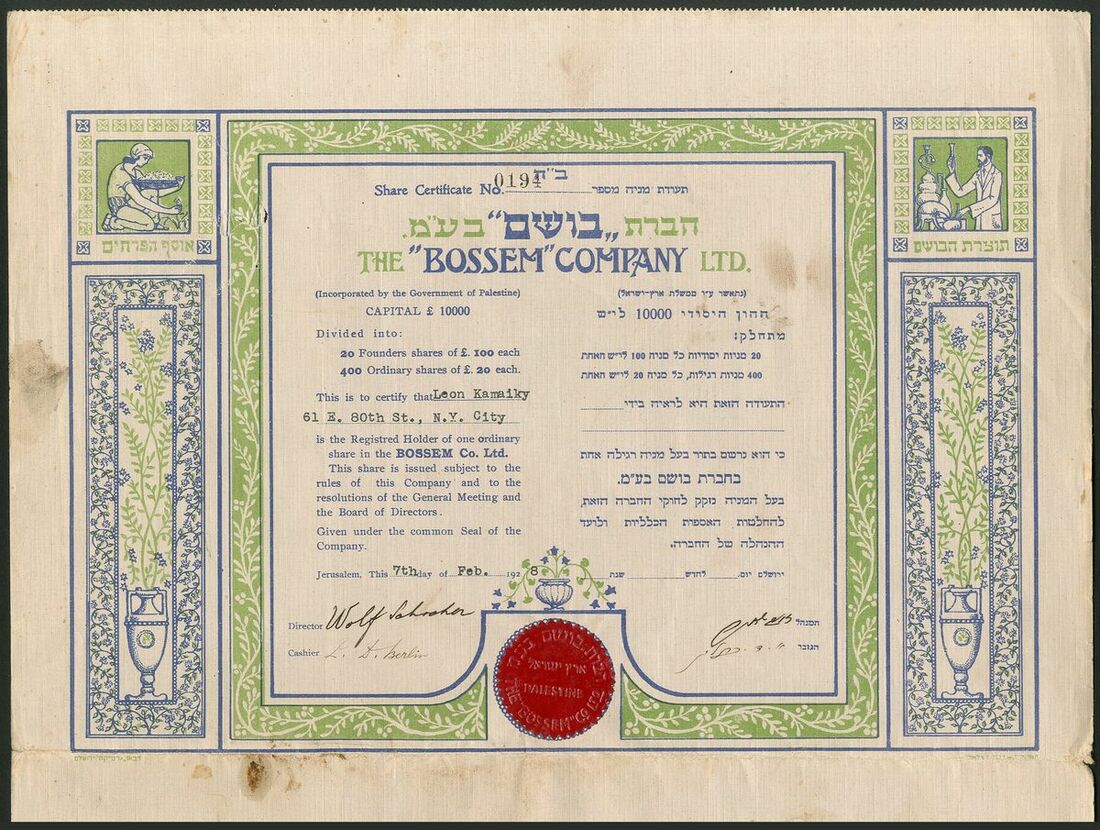 ב"ה
Share Certificate No. 0194 תעודת מניה מספר
חברת „בושם“ בע"מ.
THE "BOSSEM" COMPANY LTD.
(Incorporated by the Government of Palestine)
CAPITAL £ 10000
Divided into:
20 Founders shares of £. 100 each
400 Ordinary shares of £. 20 each.
This is to certify that Leon Kamaiky
61 E. 80th St., N.Y. City
is the Registred Holder of one ordinary
share in the BOSSEM Co. Ltd.
This share is issued subject to the
rules of this Company and to the
resolutions of the General Meeting and
the Board of Directors.
Given under the common Seal of the
Company.
Jerusalem, This 7th day of Feb. 1928
Director Wolf Schracher
Cashier L. D. Berlin
(נתאשר ע"י ממשלת ארץ-ישראל)
ההון היסודי 10000 לי"ש
מתחלק:
20 מניות יסודיות כל מניה 100 לי"ש האחת
400 מניות רגילות, כל מניה 20 לי"ש האחת
התעודה הזאת היא לראיה בידי
כי הוא נרשם בתור בעל מניה רגילה אחת
בחברת בושם בע"מ.
בעל המניה נזקק לחוקי החברה הזאת,
להחלטות האספות הכלליות ולועד
ההנהלה של החברה.
ירושלים יום, לחדש, שנת
המנהל
הגזבר
אוסף הפרחים
תוצרת הבושם
חברת בושם בע"מ
ארץ ישראל
PALESTINE
THE "BOSSEM" CO LTD.